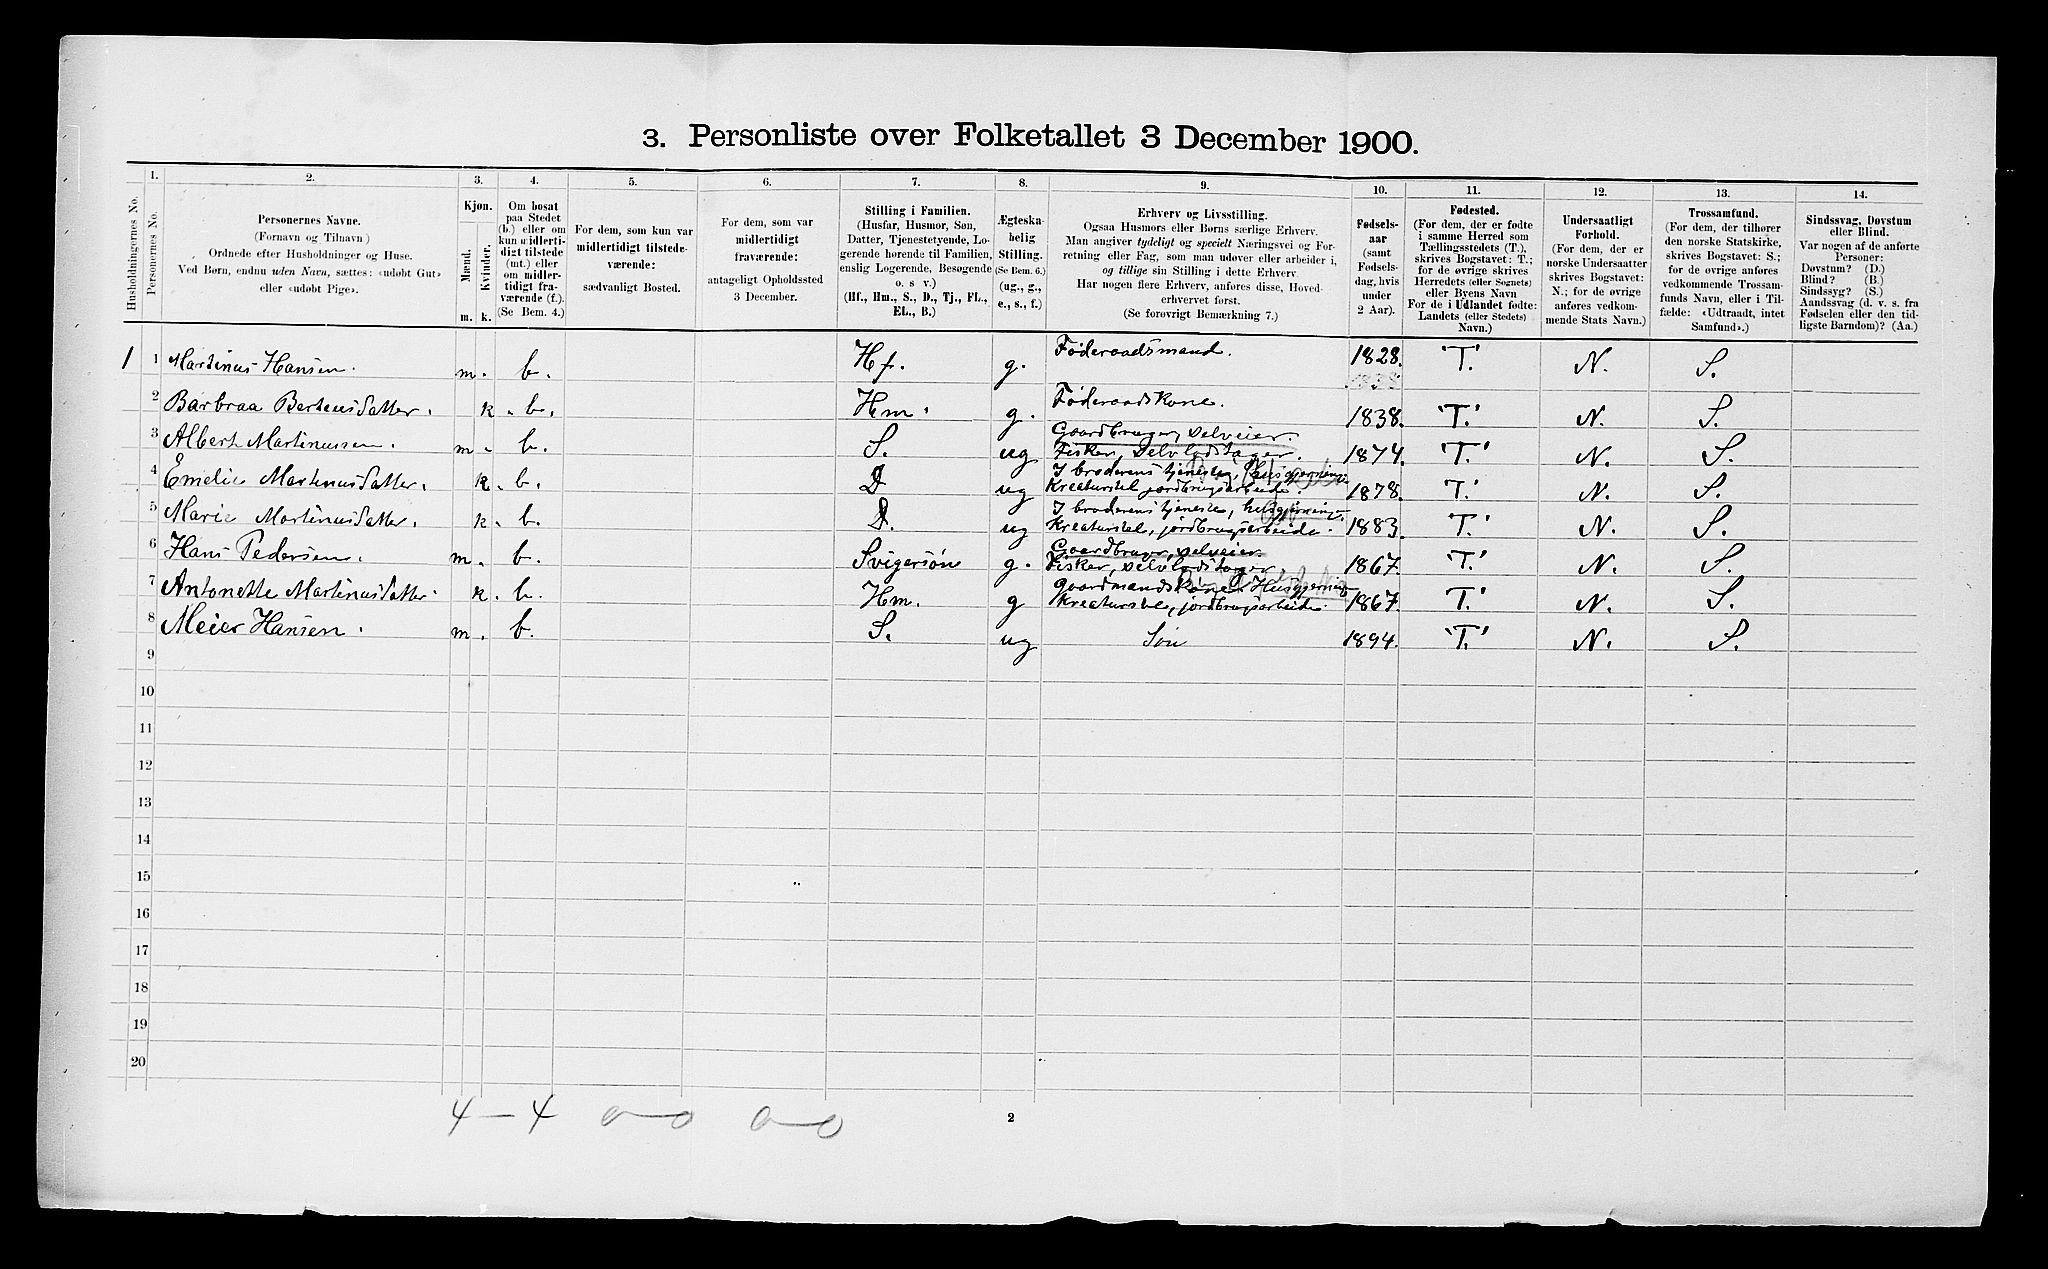 3. Personliste over Folketallet 3 December 1900.
Husholdningernes No.
1.
Personernes No.
2.
Personernes Navne.
(Fornavn og Tilnavn)
Ordnede efter Husholdninger og Huse.
Ved Børn, endnu uden Navn, sættes: «udøbt Gut»
eller «udøbt Pige».
3.
Kjøn.
Mænd.
Kvinder.
m. k.
4.
Om bosat
paa Stedet
(b.) eller om
kun midlerti-
digt tilstede
(mt.) eller
om midler-
tidigt fra-
værende (f.).
(Se Bem. 4.)
5.
For dem, som kun var
midlertidigt tilstede-
værende:
sædvanligt Bosted.
6.
For dem, som var
midlertidigt
fraværende:
antageligt Opholdssted
3 December.
7.
Stilling i Familien.
(Husfar, Husmor, Søn,
Datter, Tjenestetyende, Lo-
gerende hørende til Familien,
enslig Logerende, Besøgende
o. s v.)
(Hf., Hm., S., D., Tj., FL.,
EL., B.)
8.
Ægteska-
belig
Stilling.
(Se Bem. 6.)
(ug., g.,
e., s., f.)
9.
Erhverv og Livsstilling.
Ogsaa Husmors eller Børns særlige Erhverv.
Man angiver tydeligt og specielt Næringsvei og For-
retning eller Fag, som man udøver eller arbeider i,
og tillige sin Stilling i dette Erhverv.
Har nogen flere Erhverv, anføres disse, Hoved-
erhvervet først.
(Se forøvrigt Bemærkning 7.)
10.
Fødsels-
aar
(samt
Fødsels-
dag, hvis
under
2 Aar).
11.
Fødested.
(For dem, der er fødte
i samme Herred som
Tællingsstedets (T.),
skrives Bogstavet: T.;
for de øvrige skrives
Herredets (eller Sognets)
eller Byens Navn
For de i Udlandet fødte:
Landets (eller Stedets)
Navn.)
12.
Undersaatligt
Forhold.
(For dem, der er
norske Undersaatter
skrives Bogstavet:
N.; for de øvrige
anføres vedkom-
mende Stats Navn.)
13.
Trossamfund.
(For dem, der tilhører
den norske Statskirke,
skrives Bogstavet: S.;
for de øvrige anføres
vedkommende Trossam-
funds Navn, eller i Til-
fælde: «Udtraadt, intet
Samfund».)
14.
Sindssvag, Døvstum
eller Blind.
Var nogen af de anførte
Personer:
Døvstum? (D.)
Blind? (B.)
Sindssyg? (S.)
Aandssvag (d. v. s. fra
Fødselen eller den tid-
ligste Barndom)? (Aa.)
1 1 Martinus Hansen. m. b. Hf. g. Føderaadsmand. 1828. 'T.' N. S.
2 Barbraa BerteusDatter. k. b. Hm. g. Føderaadskone. 1838. 'T.' N. S.
3 Albert Martinussen. m. b. S. ug Gaardbruger, selveier.
Fisker, selvlodstager. 1874. 'T.' N. S.
4 Emelie MartinusDatter. k. b. D ug I broderens tjeneste, husgjerning
Kreaturstel jordbrugsarbeide. 1878. 'T.' N. S.
5 Marie MartinusDatter. k. b. D. ug I broderens tjeneste, husgjerning.
Kreaturstel, jordbrugsarbeide. 1883. 'T.' N. S.
6 Hans Pedersen. m. b. Svigersøn g. Gaardbruger, selveier.
Fisker, selvlodstager. 1867. 'T.' N. S.
7 Antonette MartinusDatter. k. b. Hm. g Gaardmandskone. Husgjerning
Kreaturstel, jordbrugsarbeide. 1867 'T.' N. S.
8 Meier Hansen. m. b. S. ug Søn 1894. 'T.' N. S.
9
10
11
12
13
14
15
16
17
18
19
20
4 - 4 0-0 0-0
2